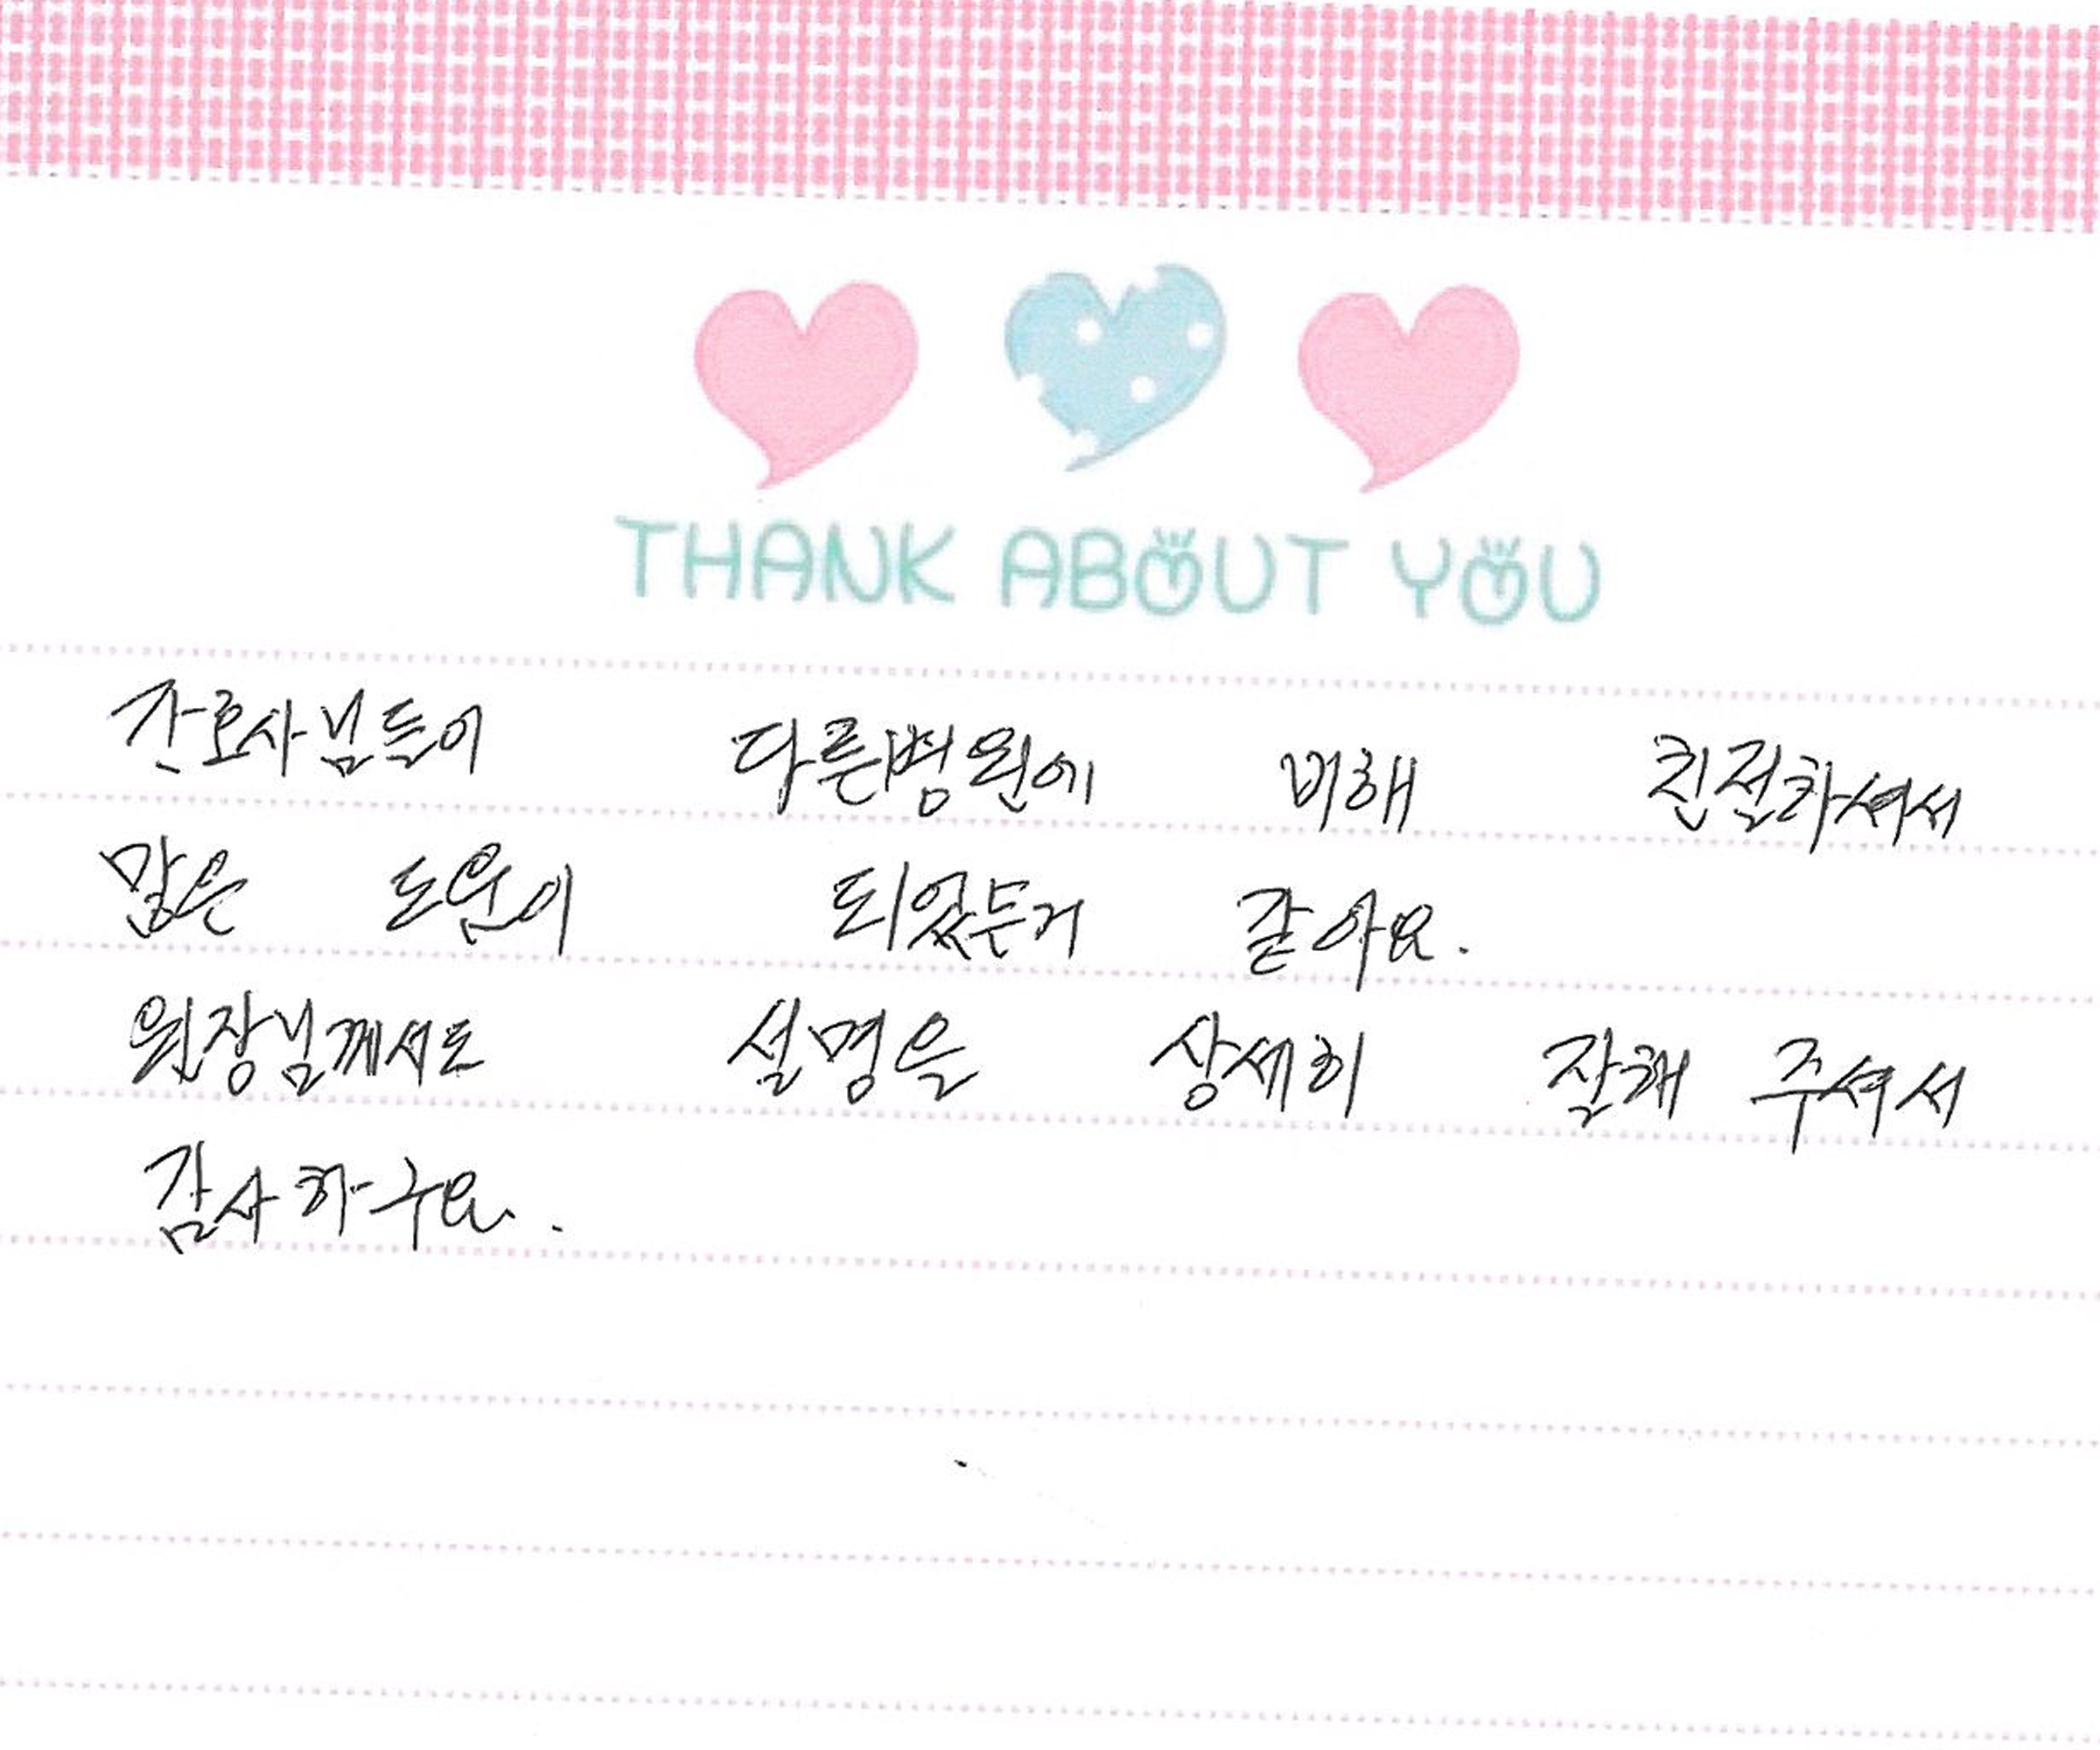 THANK ABOUT YOU
간호사님들이 다른병원에 비해 친절하셔서
많은 도움이 되었든거 같아요.
원장님께서도 설명을 상세히 잘해 주셔서
감사하구요.